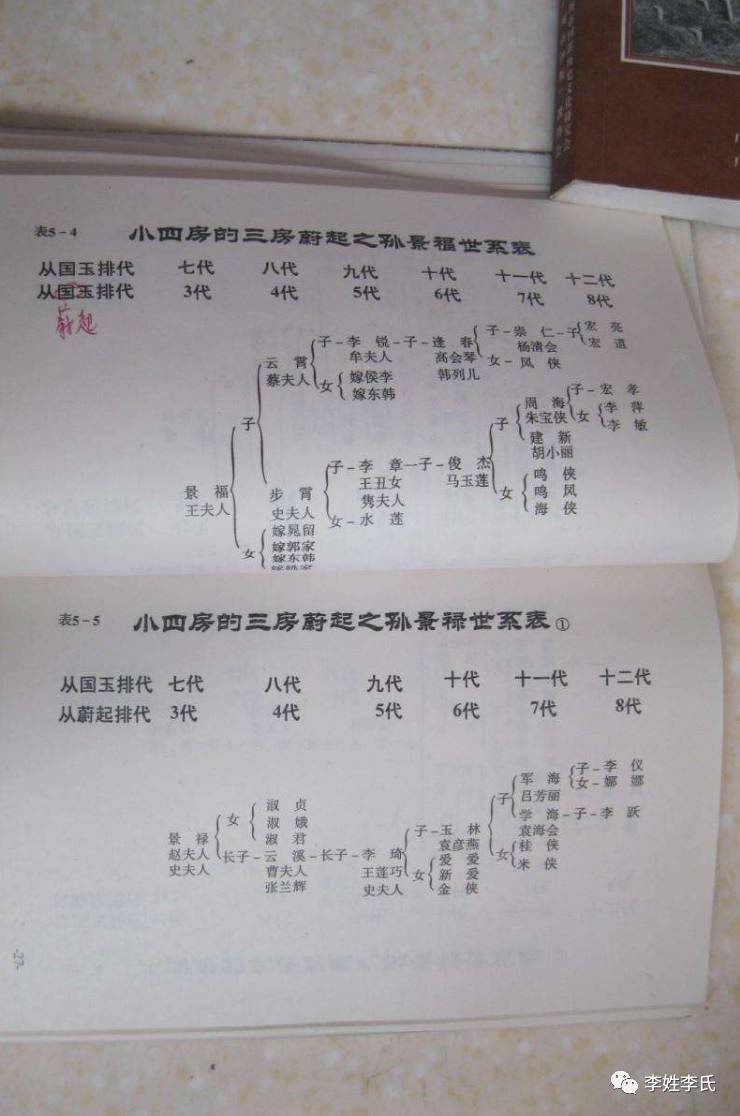 表5-4 小四房的三房蔚起之孙景福世系表
从国玉排代 七代 八代 九代 十代 十一代 十二代
从国玉排代 3代 4代 5代 6代 7代 8代
蔚起
子-崇 仁-子 宏 亮
云 霄 子-李 锐-子-逢 春 杨清会 宏 道
蔡夫人 牟夫人 高会琴 女-凤 侠
女 嫁侯李 韩列儿
嫁东韩
周 海 子-宏 孝
子 朱宝侠 女 李 萍
子 建 新 李 敏
胡小丽
景 福 步 霄 子-李 章-子-俊 杰
王夫人 史夫人 王丑女 马玉莲
隽夫人 女 鸣 侠
女-水 莲 鸣 凤
海 侠
女 嫁晁留
嫁郭家
嫁东韩
表5-5 小四房的三房蔚起之孙景禄世系表①
从国玉排代 七代 八代 九代 十代 十一代 十二代
从蔚起排代 3代 4代 5代 6代 7代 8代
子 军 海 子-李 仪
吕芳丽 女-娜 娜
女 淑 贞 学 海-子-李 跃
淑 娥 子-玉 林 袁海会
景 禄 淑 君 袁彦燕 女 桂 侠
赵夫人 长子-云 溪-长子-李 琦 女 爱 爱 米 侠
史夫人 曹夫人 王莲巧 新 爱
张兰辉 史夫人 金 侠
-27-
李姓李氏